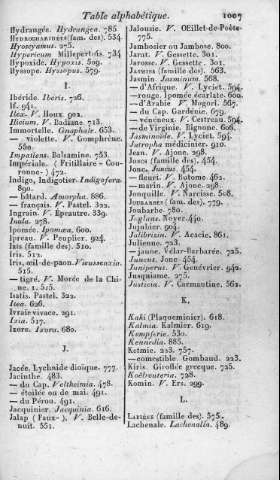 Table alphabétique. 1007
Hydrangée. Hydrangea. 785
Hydrocharidées (fam. des). 534.
Hyoscyamus. 275.
Hypericum Millepertuis. 734
Hypoxide. Hypoxis. 509.
Hyssope. Hyssopus. 579.
I.
Ibéride. Iberis. 726.
If. 941.
Ilex. V. Houx. 902.
Illicium. V. Badiane. 715
Immortelle. Gnaphale. 653.
— violette. V. Gomphrène.
550.
Impatiens. Balsamine. 753.
Impériale. (Fritillaire « Couronne-) 472.
Indigo, Indigotier. Indigofera
890.
— bâtard. Amorpha. 886.
— français. V. Pastel. 322.
Ingroin. V. Épeautre. 339
Inula. 278.
Ipomée. Ipomæa, 600.
Ipreau. V. Peuplier. 924.
Iris (famille des). 510.
Iris. 512.
Iris, œil-de-paon. Vieusseuxia.
515.
— tigré. V. Morée de la Chine. 1. 515.
Isatis. Pastel. 322.
Itea. 626.
Ivraie vivace. 291.
Ixia. 517.
Ixora. Ixora. 680.
J.
Jacée. Lychnide dioïque. 777.
Jacinthe. 483.
— du Cap. Veltheimia. 478.
— étoilée ou de mai. 491.
— du Pérou. 491.
Jacquinier. Jacquinia. 616.
Jalap (Faux-). V. Belle-de-
nuit. 551.
Jalousie. V. Œillet-de-Poète.
775.
Jamboisier ou Jambose. 800.
Jarat. V. Gessette. 301.
Jarosse. V. Gessette. 301.
Jasmins (famille des). 563.
Jasmin Jasminum. 568.
— d'Afrique. V. Lyciet. 594.
— rouge. Ipomée écarlate. 600.
— d'Arabie V. Mogori. 567.
— du Cap. Gardène. 679.
— vénéneux. V. Cestreau. 594.
— de Virginie. Bignone. 606.
Jasminoïde. V. Lyciet. 594.
Jatropha médicinier. 910.
Jean. V. Ajonc. 298.
Joncs (famille des). 454.
Jonc. Juncus. 454.
— fleuri. V. Butome. 461.
— marin. V. Ajonc. 298.
Jonquille. V. Narcisse. 508.
Joubarbes (fam. des). 779.
Joubarbe. 780.
Juglans. Noyer. 440.
Jujubier. 904.
Julibrizin. V. Acacie. 861.
Julienne. 723.
— jaune. Vélar-Barbarée. 725.
Juncus. Jonc. 454.
Juniperus. V. Genévrier. 942.
Jusquiame. 275.
Justicia. V. Carmantine. 562.
K.
Kaki (Plaqueminier). 618.
Kalmia. Kalmier. 619.
Kæmpferie. 530.
Kennedia. 885.
Ketmie. 223. 757.
— comestible Gombaud. 223.
Kiris. Giroflée grecque. 725.
Koëlreuteria. 728.
Komin. V. Ers. 299.
L.
Labiées (famille des). 575.
Lachenale. Lachenalia. 489.